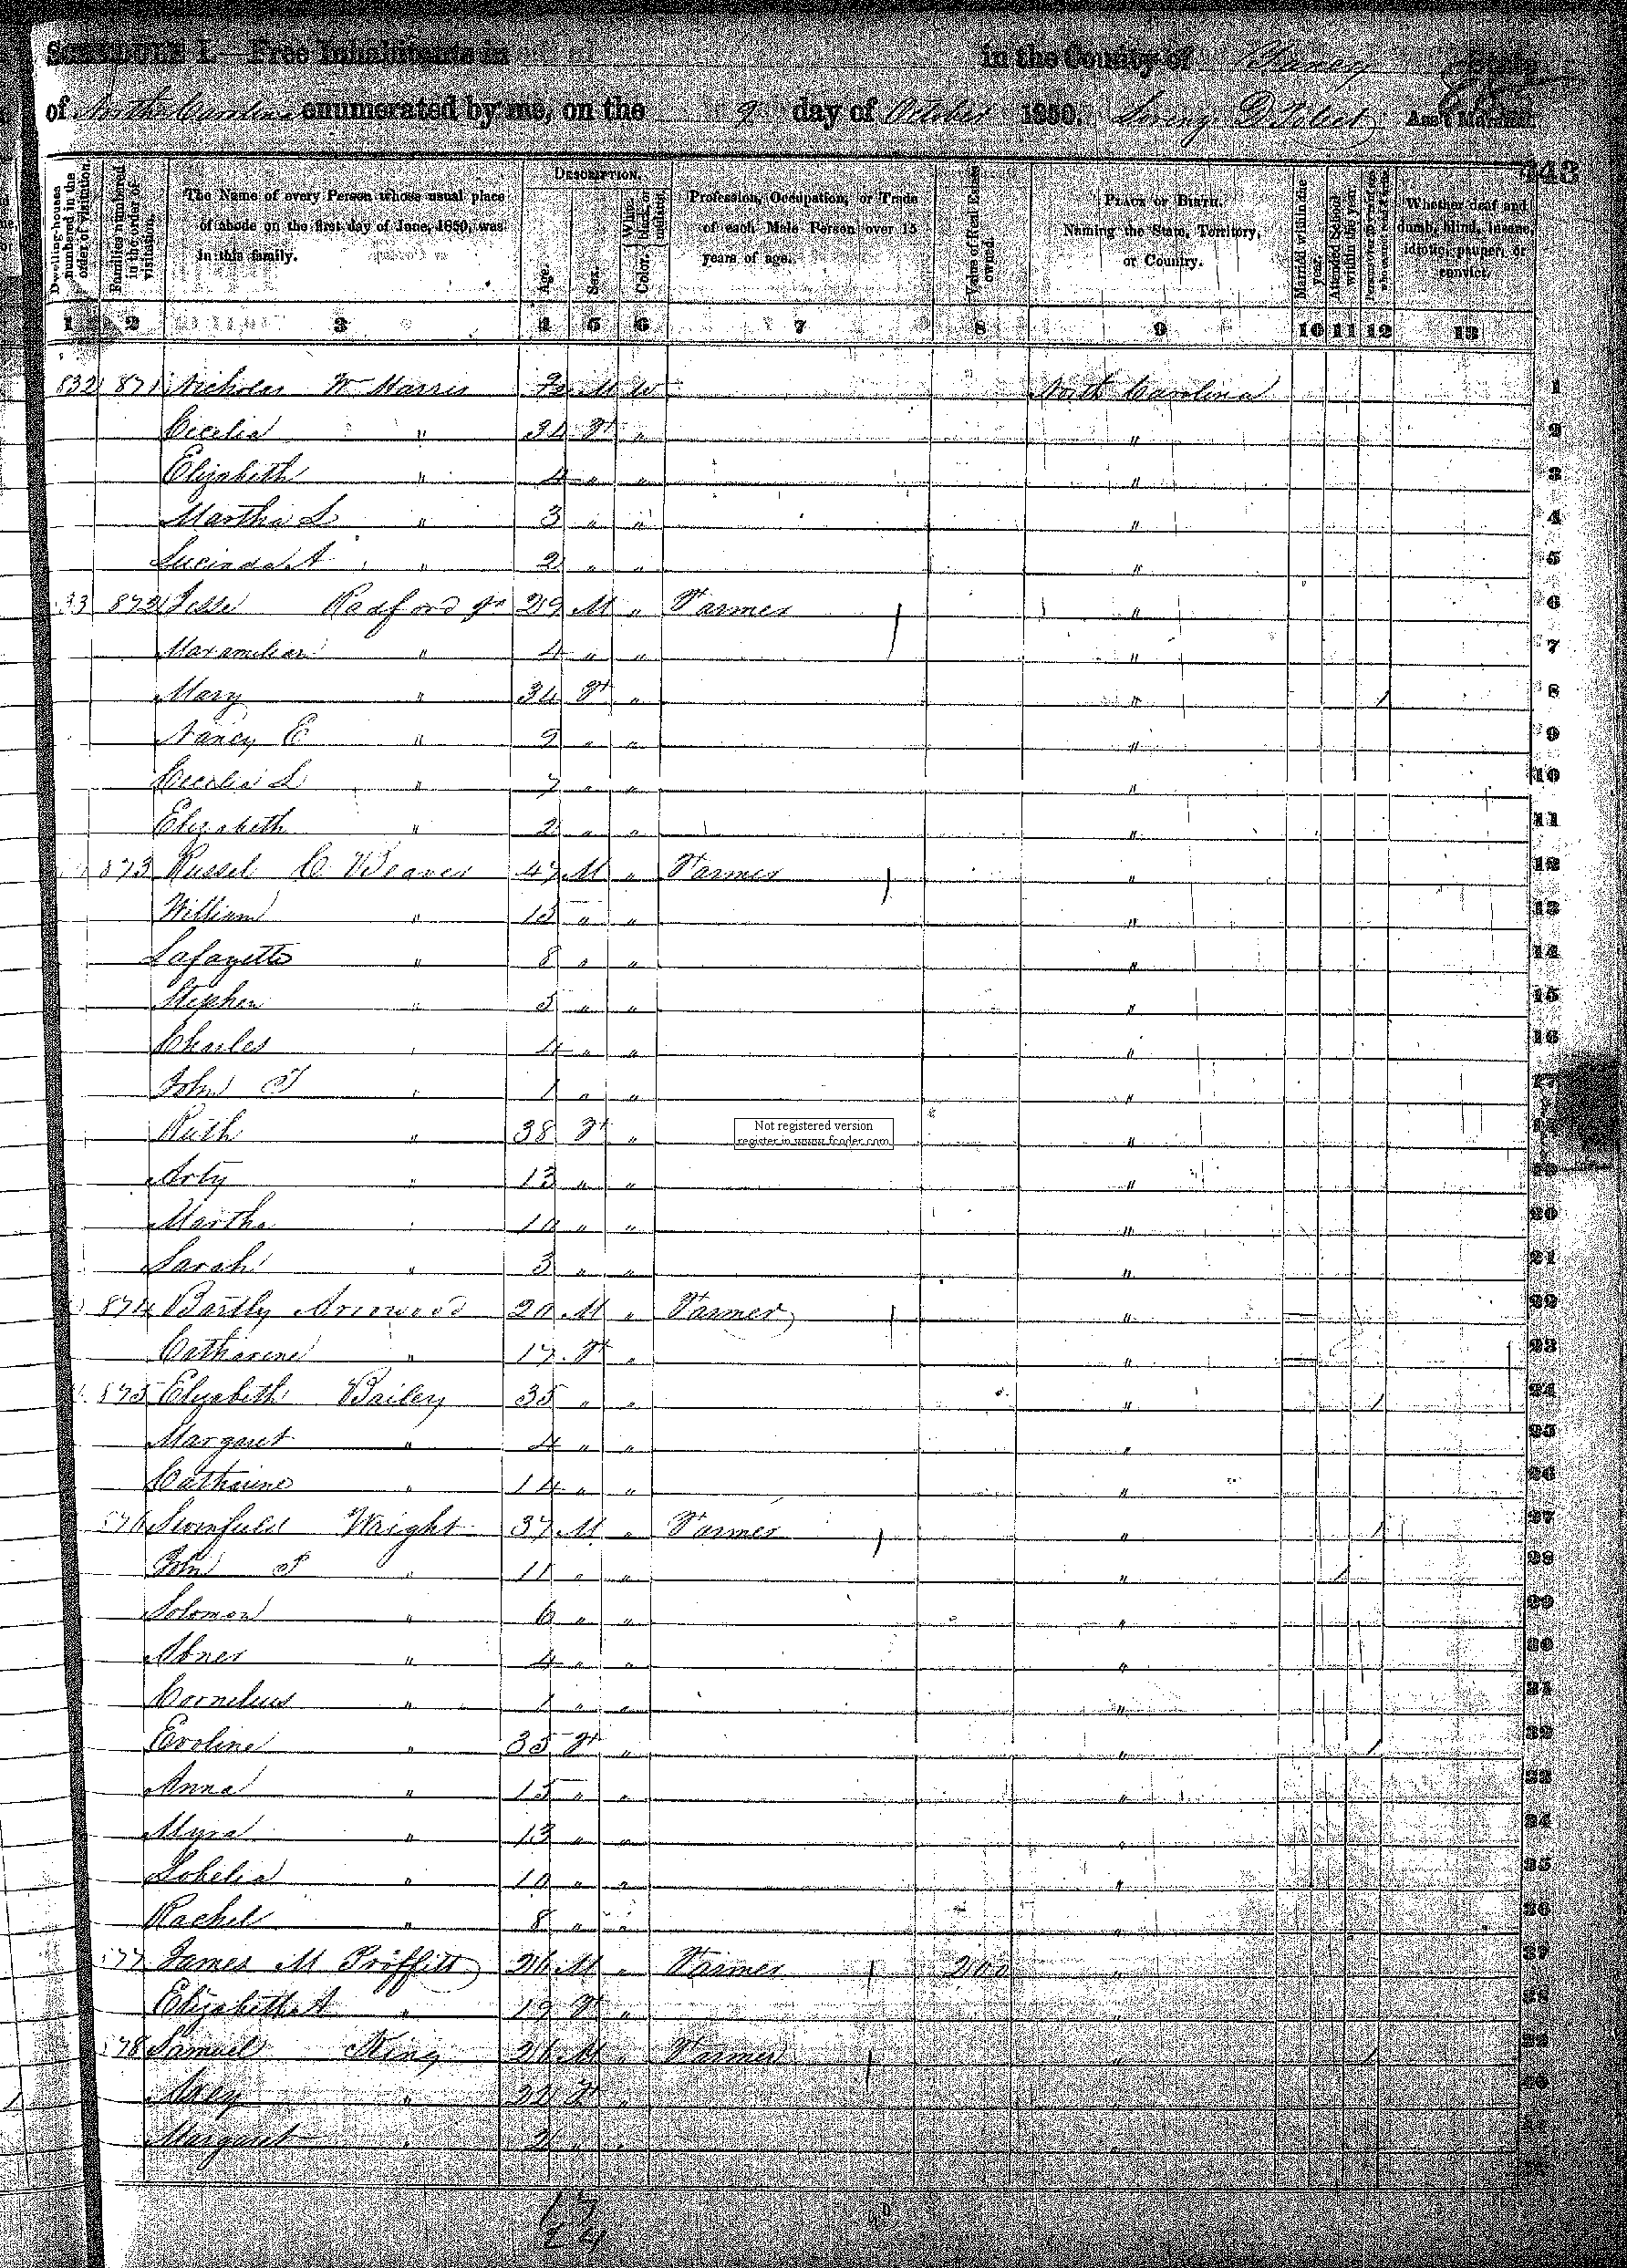 SCHEDULE I.—Free Inhabitants in in the County of Yancey State
of North Carolina enumerated by me, on the 9 day of October 1850. Ass't Marshal.
443
Dwelling-houses numbered in the order of visitation.
Families numbered in the order of visitation.
The Name of every Person whose usual place of abode on the first day of June, 1850, was in this family.
DESCRIPTION.
Age.
Sex.
Color, White, black, or mulatto.
Profession, Occupation, or Trade of each Male Person over 15 years of age.
Value of Real Estate owned.
PLACE OF BIRTH. Naming the State, Territory, or Country.
Married within the year.
Attended School within the year.
Persons over 20 y'rs of age who cannot read & write.
Whether deaf and dumb, blind, insane, idiotic, pauper, or convict.
1 2 3 4 5 6 7 8 9 10 11 12 13
832 871 Nicholas W Harris M W North Carolina 1
Cecelia " 34 F " " 2
Elizabeth " 4 " " " 3
Martha L " 3 " " " 4
Lucinda A " 2 " " " 5
33 872 Jesse Radford Jr 29 M " Farmer " 6
Maxamilian " 4 " " " 7
Mary " 34 F " " / 8
Nancy E " 9 " " " 9
Cecelia L " 7 " " " 10
Elizabeth " 2 " " " 11
873 Russel C Weaver 47 M " Farmer " 12
William " 15 " " " 13
Lafayette " 8 " " " 14
Stephen " 5 " " " 15
Charles " 4 " " " 16
John T " 1 " " " 17
Ruth " 38 F " " 18
Not registered version
register in www.fcoder.com
Arty " 13 " " " 19
Martha " 10 " " " 20
Sarah " 3 " " " 21
874 Bartly Arrowood 20 M " Farmer " 22
Catharine " 17 F " " 23
875 Elizabeth Bailey 35 " " " / 24
Margaret " 4 " " " 25
Catharine " 14 " " " 26
876 Wright 37 M " Farmer " / 27
John P " 11 " " " / 28
Solomon " 6 " " " 29
Abner " 4 " " " 30
Cornelius " 1 " " " 31
Evoline " 35 F " " / 32
Anna " 15 " " " 33
Myra " 13 " " " 34
Lobelia " 10 " " " 35
Rachel " 8 " " " 36
877 James M Proffitt 26 M " Farmer 200 " 37
Elizabeth A " 19 F " " 38
878 Samuel King 26 M " Farmer " / 39
" F " " 40
Margaret " 2 " " " 41
42
17
24